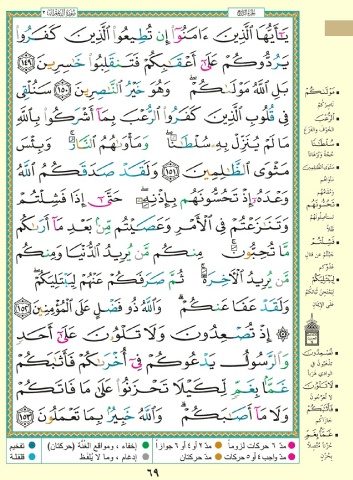 سُورَةُ آلِ عِمْرَانَ ٣
الجزء الرابع
يَٰٓأَيُّهَا ٱلَّذِينَ ءَامَنُوٓا۟ إِن تُطِيعُوا۟ ٱلَّذِينَ كَفَرُوا۟
يَرُدُّوكُمْ عَلَىٰٓ أَعْقَٰبِكُمْ فَتَنقَلِبُوا۟ خَٰسِرِينَ ١٤٩
بَلِ ٱللَّهُ مَوْلَىٰكُمْ ۖ وَهُوَ خَيْرُ ٱلنَّٰصِرِينَ ١٥٠ سَنُلْقِى
فِى قُلُوبِ ٱلَّذِينَ كَفَرُوا۟ ٱلرُّعْبَ بِمَآ أَشْرَكُوا۟ بِٱللَّهِ
مَا لَمْ يُنَزِّلْ بِهِۦ سُلْطَٰنًا ۖ وَمَأْوَىٰهُمُ ٱلنَّارُ ۚ وَبِئْسَ
مَثْوَى ٱلظَّٰلِمِينَ ١٥١ وَلَقَدْ صَدَقَكُمُ ٱللَّهُ
وَعْدَهُۥٓ إِذْ تَحُسُّونَهُم بِإِذْنِهِۦ ۖ حَتَّىٰٓ إِذَا فَشِلْتُمْ
وَتَنَٰزَعْتُمْ فِى ٱلْأَمْرِ وَعَصَيْتُم مِّنۢ بَعْدِ مَآ أَرَىٰكُم
مَّا تُحِبُّونَ ۚ مِنكُم مَّن يُرِيدُ ٱلدُّنْيَا وَمِنكُم
مَّن يُرِيدُ ٱلْءَاخِرَةَ ۚ ثُمَّ صَرَفَكُمْ عَنْهُمْ لِيَبْتَلِيَكُمْ ۖ
وَلَقَدْ عَفَا عَنكُمْ ۗ وَٱللَّهُ ذُو فَضْلٍ عَلَى ٱلْمُؤْمِنِينَ ١٥٢
۞ إِذْ تُصْعِدُونَ وَلَا تَلْوُۥنَ عَلَىٰٓ أَحَدٍ
وَٱلرَّسُولُ يَدْعُوكُمْ فِىٓ أُخْرَىٰكُمْ فَأَثَٰبَكُمْ
غَمًّۢا بِغَمٍّ لِّكَيْلَا تَحْزَنُوا۟ عَلَىٰ مَا فَاتَكُمْ
وَلَا مَآ أَصَٰبَكُمْ ۗ وَٱللَّهُ خَبِيرٌۢ بِمَا تَعْمَلُونَ ١٥٣
مَوْلَىٰكُمْ
ٱلرُّعْبَ
سُلْطَٰنًا
مَثْوَى ٱلظَّٰلِمِينَ
تَحُسُّونَهُم
فَشِلْتُمْ
لِيَبْتَلِيَكُمْ
تُصْعِدُونَ
لَا تَلْوُۥنَ
فَأَثَٰبَكُمْ
غَمًّۢا بِغَمٍّ
مدّ ٦ حركات لزوماً
مدّ ٢ أو ٤ أو ٦ جوازاً
إخفاء، ومواقع الغُنَّة (حركتان)
تفخيم
مدّ واجب ٤ أو ٥ حركات
مدّ حركتان
إدغام، وما لا يُلفَظ
قلقلة
٦٩